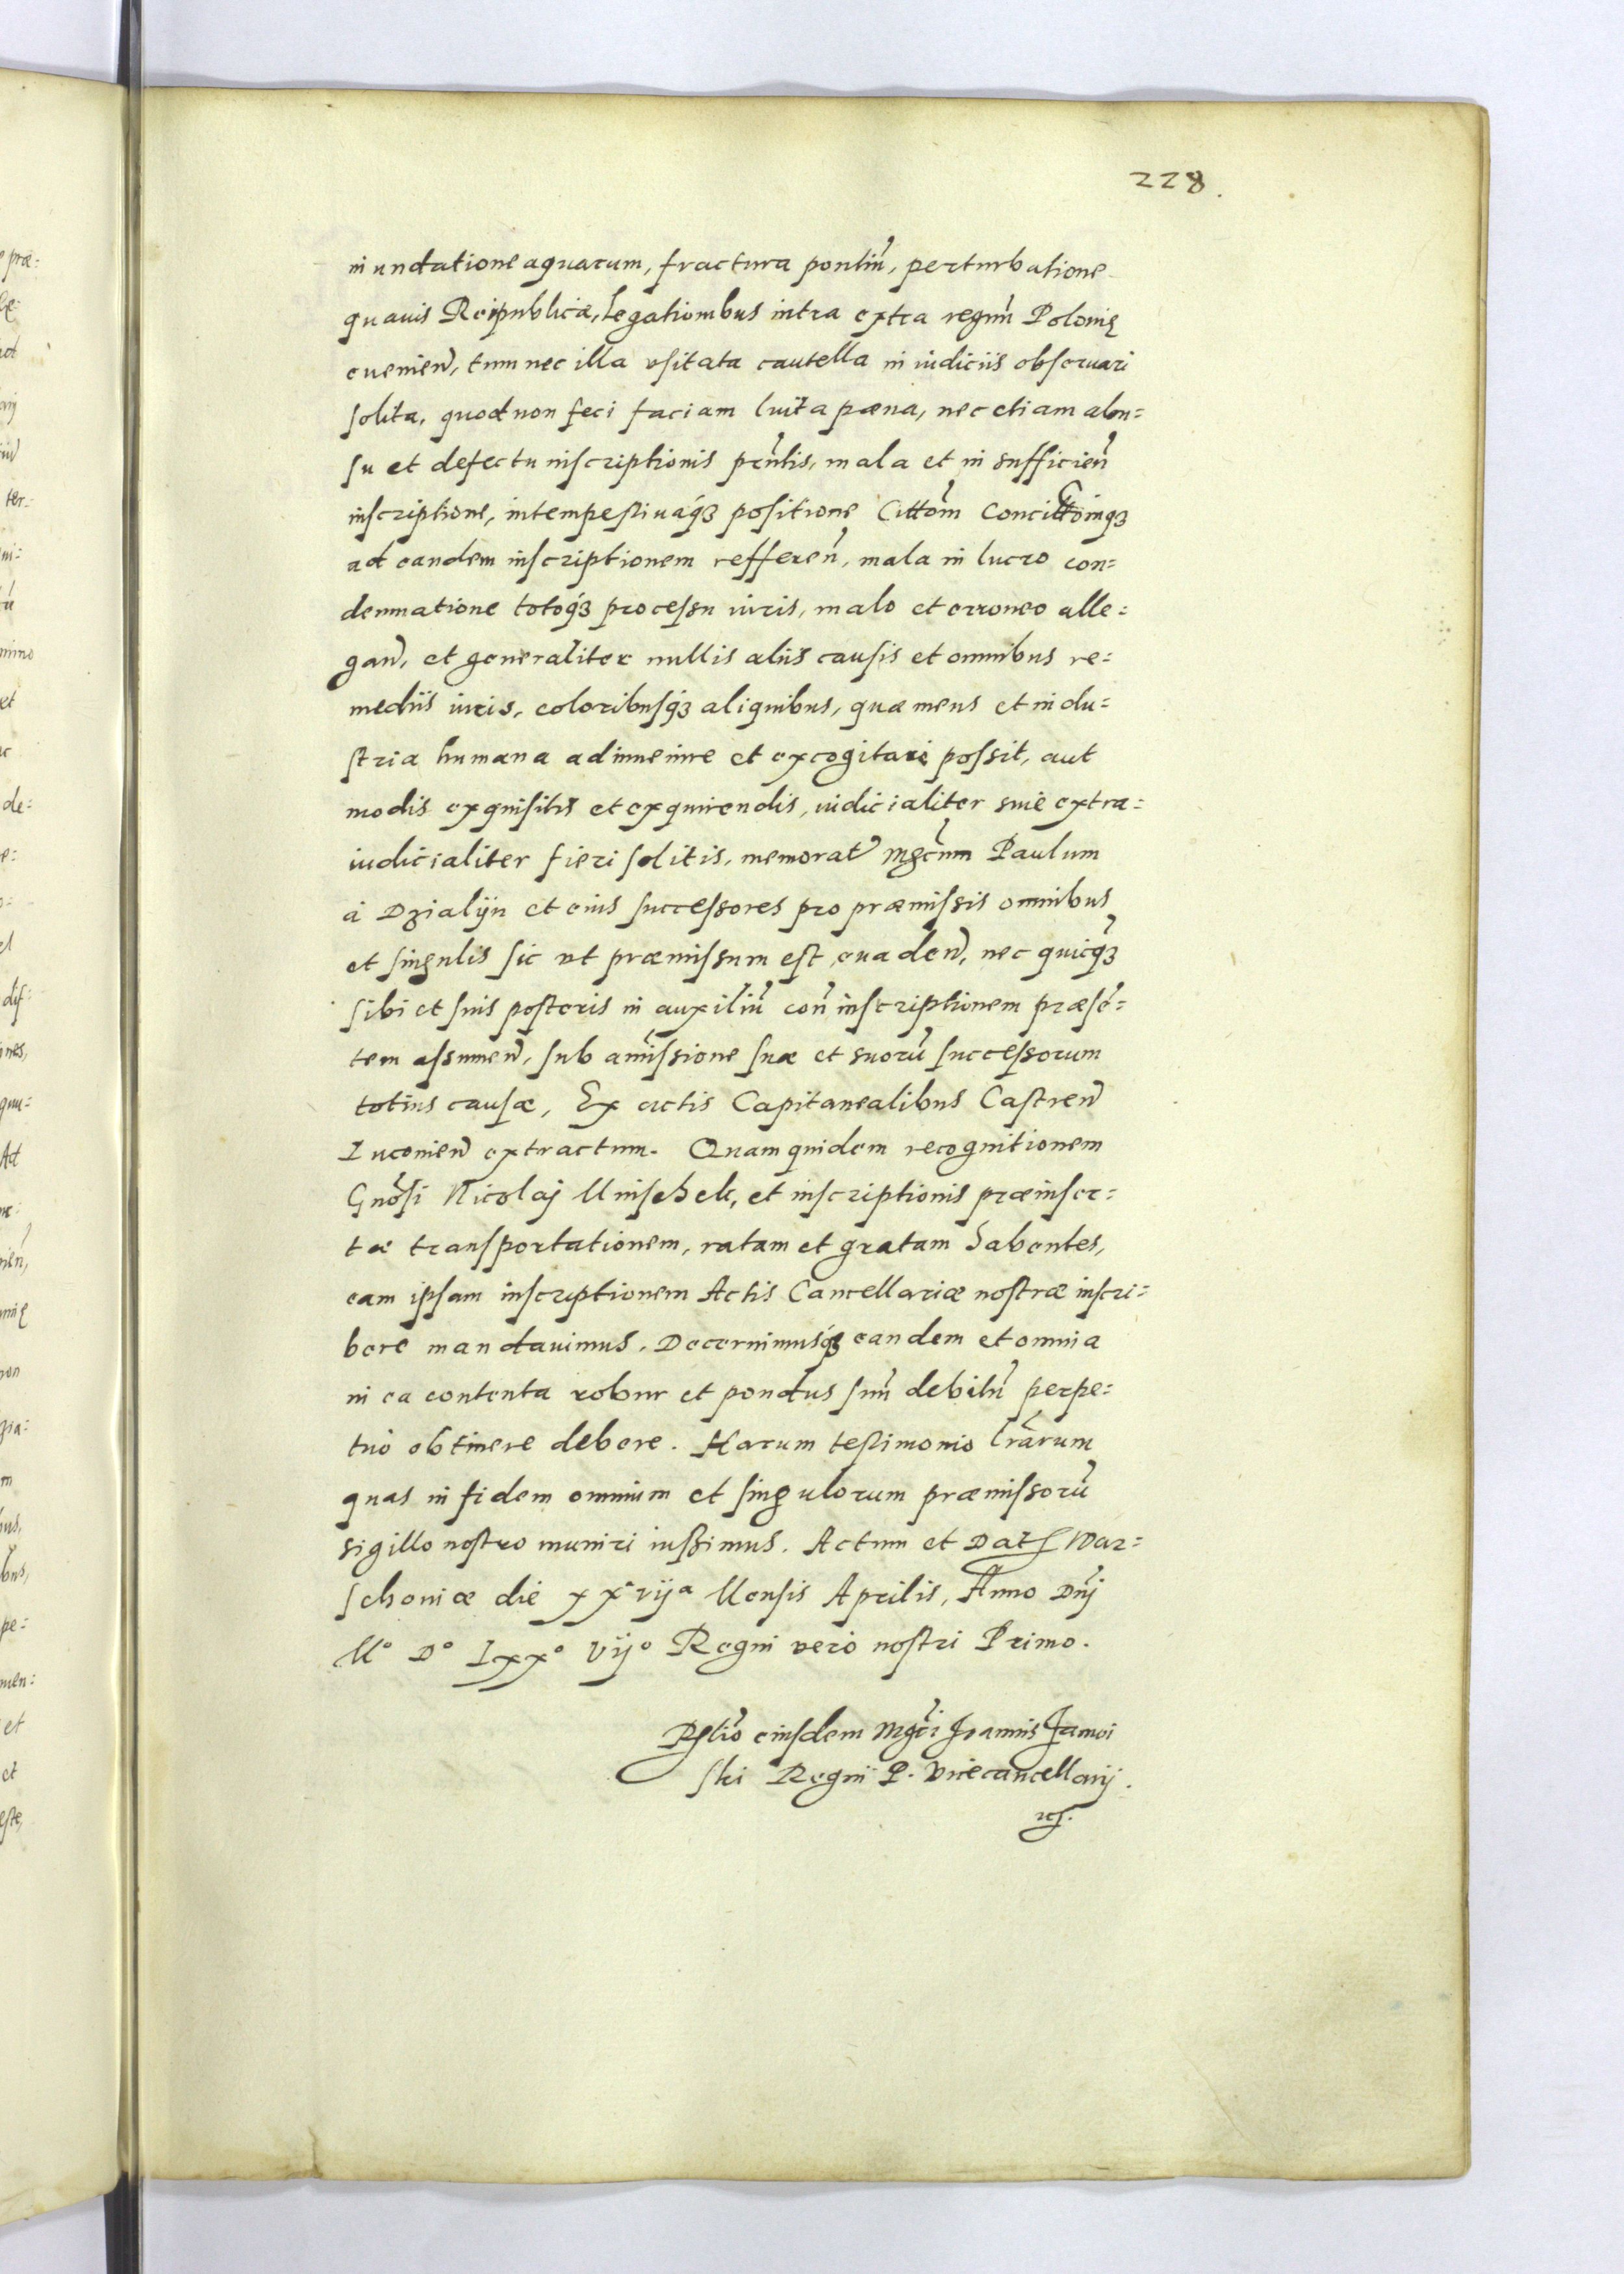 228.
inundatione aquarum, fractura pontiũ, perturbatione
quauis Reipublicæ, Legationibus intra extra regnũ Polonię
euenien̄, tum nec illa vsitata cautella in iudiciis obseruari
solita, quod non feci faciam luita pæna, nec etiam abu=
su et defectu inscriptionis pñtis, mala et in sufficien̄
inscriptione, intempestiuaq́ꝫ positione Cittom̃ Concittoinqꝫ
ad eandem inscriptionem refferen̄, mala in lucro con=
demnatione totoq́ꝫ processu iuris, malo et erroneo alle=
gan̄, et generaliter nullis aliis causis et omnibus re=
mediis iuris, coloribusq́ꝫ aliquibus, quæ mens et indu=
stria humana adinuenire et excogitare possit, aut
modis exquisitis et exquirendis, iudicialiter siue extra=
iudicialiter fieri solitis, memorat̄ Mgcũm Paulum
à Dzialijn et eius successores pro præmissis omnibus
et singulis sic vt præmissum est euaden̄, nec quicq̃ꝫ
sibi et suis posteris in auxiliũ con̄ inscriptionem præsẽ=
tem assumen̄, sub amissione suæ et suorũ successorum
totius causæ, Ex actis Capitanealibus Castren̄
Iuconien̄ extractum. Quam quidem recognitionem
Gnõsi Nicolaj Mnischek, et inscriptionis præinser=
tæ transportationem, ratam et gratam habentes,
eam ipsam inscriptionem Actis Cancellariæ nostræ inscri=
bere mandauimus. Decernimusq́ꝫ eandem et omnia
in ea contenta robur et pondus suũ debitũ perpe=
tuò obtinere debere. Harum testimonio lrãrum
quas in fidem omnium et singulorum præmissorũ
sigillo nostro muniri iussimus. Actum et Dat̄ War=
schouiæ die xxª vijª Mensis Aprilis, Anno Dñj
Mº Dº Lxxº vijº Regni verò nostri Primo.
Rel̃tio eiusdem Mgci̇ Joannis Zamoi
ski Regni P. Vicecancellarij.